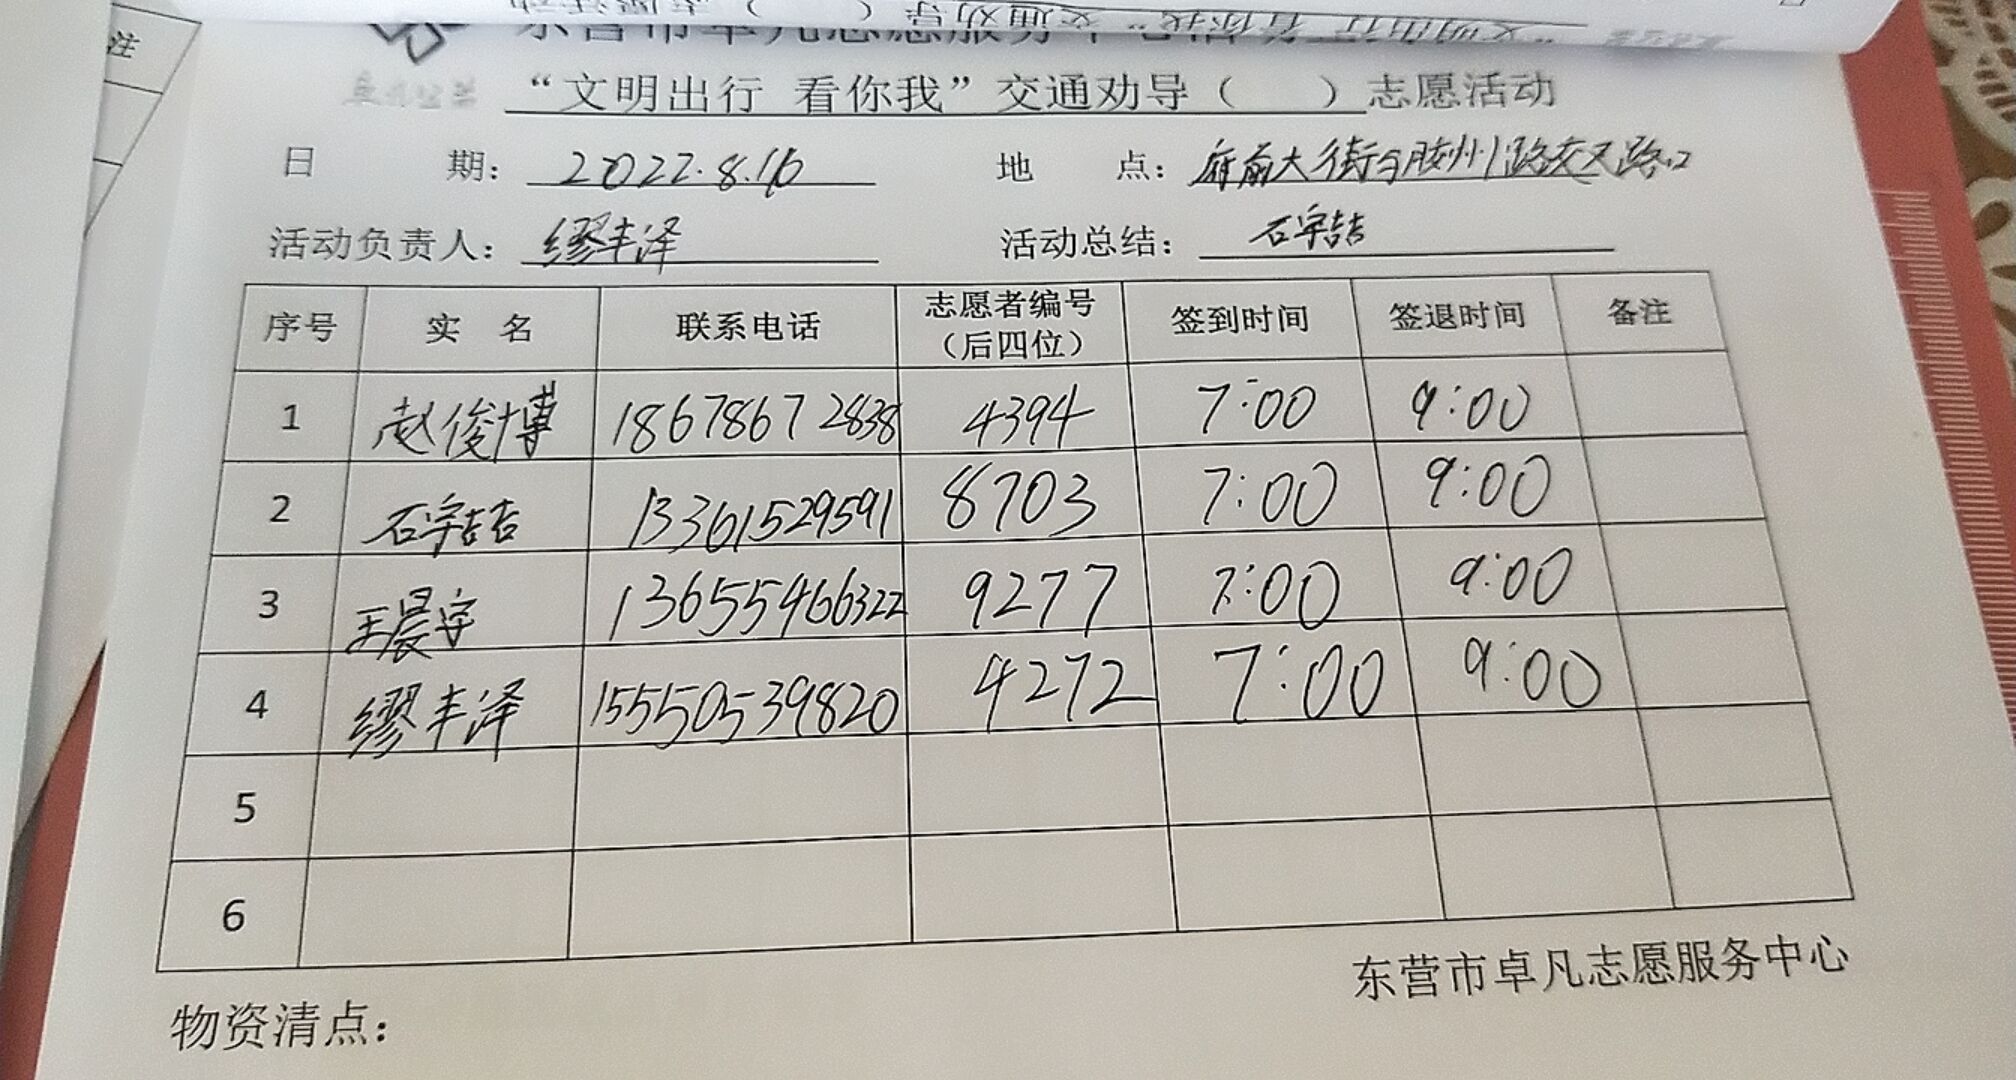 注
“文明出行 看你我”交通劝导（ ）志愿活动
日 期： 2022.8.16 地 点： 府前大街与胶州路交叉路口
活动负责人： 缪丰泽 活动总结： 石宇喆
序号 实 名 联系电话 志愿者编号（后四位） 签到时间 签退时间 备注
1 赵俊博 18678672838 4394 7:00 9:00
2 石宇喆 13361529591 8703 7:00 9:00
3 王晨宇 13655466322 9277 7:00 9:00
4 缪丰泽 15550539820 4272 7:00 9:00
5
6
东营市卓凡志愿服务中心
物资清点：